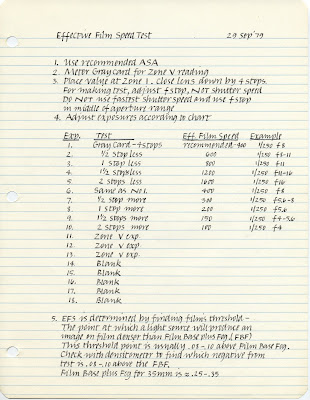 Effective Film Speed Test 29 Sep '79
1. Use recommended ASA
2. Meter Gray card for Zone V reading
3. Place value at Zone 1. Close lens down by 4 stops.
For making test, adjust f stop, NOT shutter speed
Do NOT use fastest shutter speed and use f stop
in middle of aperture range
4. Adjust exposures according to chart
Exp. Test Eff. Film Speed Example
1. Gray Card - 4 stops recommended - 400 1/250 f8
2. 1/2 stop less 600 1/250 f8-11
3. 1 stop less 800 1/250 f11
4. 1 1/2 stops less 1200 1/250 f11-16
5. 2 stops less 1600 1/250 f16
6. Same as No1. 400 1/250 f8
7. 1/2 stop more 300 1/250 f5.6-8
8. 1 stop more 200 1/250 f5.6
9. 1 1/2 stops more 150 1/250 f4-5.6
10. 2 stops more 100 1/250 f4
11. Zone V exp.
12. Zone V exp
13. Zone V exp.
14. Blank
15. Blank
16. Blank
17. Blank
18. Blank
5. EFS is determined by finding film's threshold -
The point at which a light source will produce an
image on film denser than Film Base plus Fog. (FBF)
This threshold point is usually .08-.10 above Film Base Fog.
Check with densitometer to find which negative from
test is .08-.10 above the FBF.
Film Base plus Fog for 35mm is ≈ .25-.35